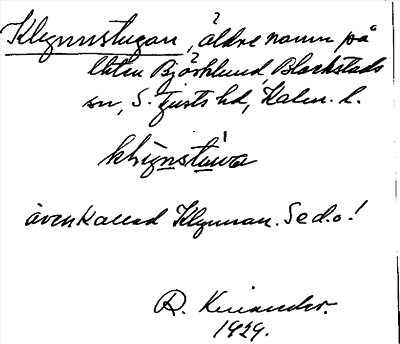 Klynnstugan, äldre namn på
lhten Björklund, Blackstads
sn, S. Tjusts hd, Kalm. l.
klýnstúwa
även kallad Klynnan. Se d.o!
R. Kinander.
1929.